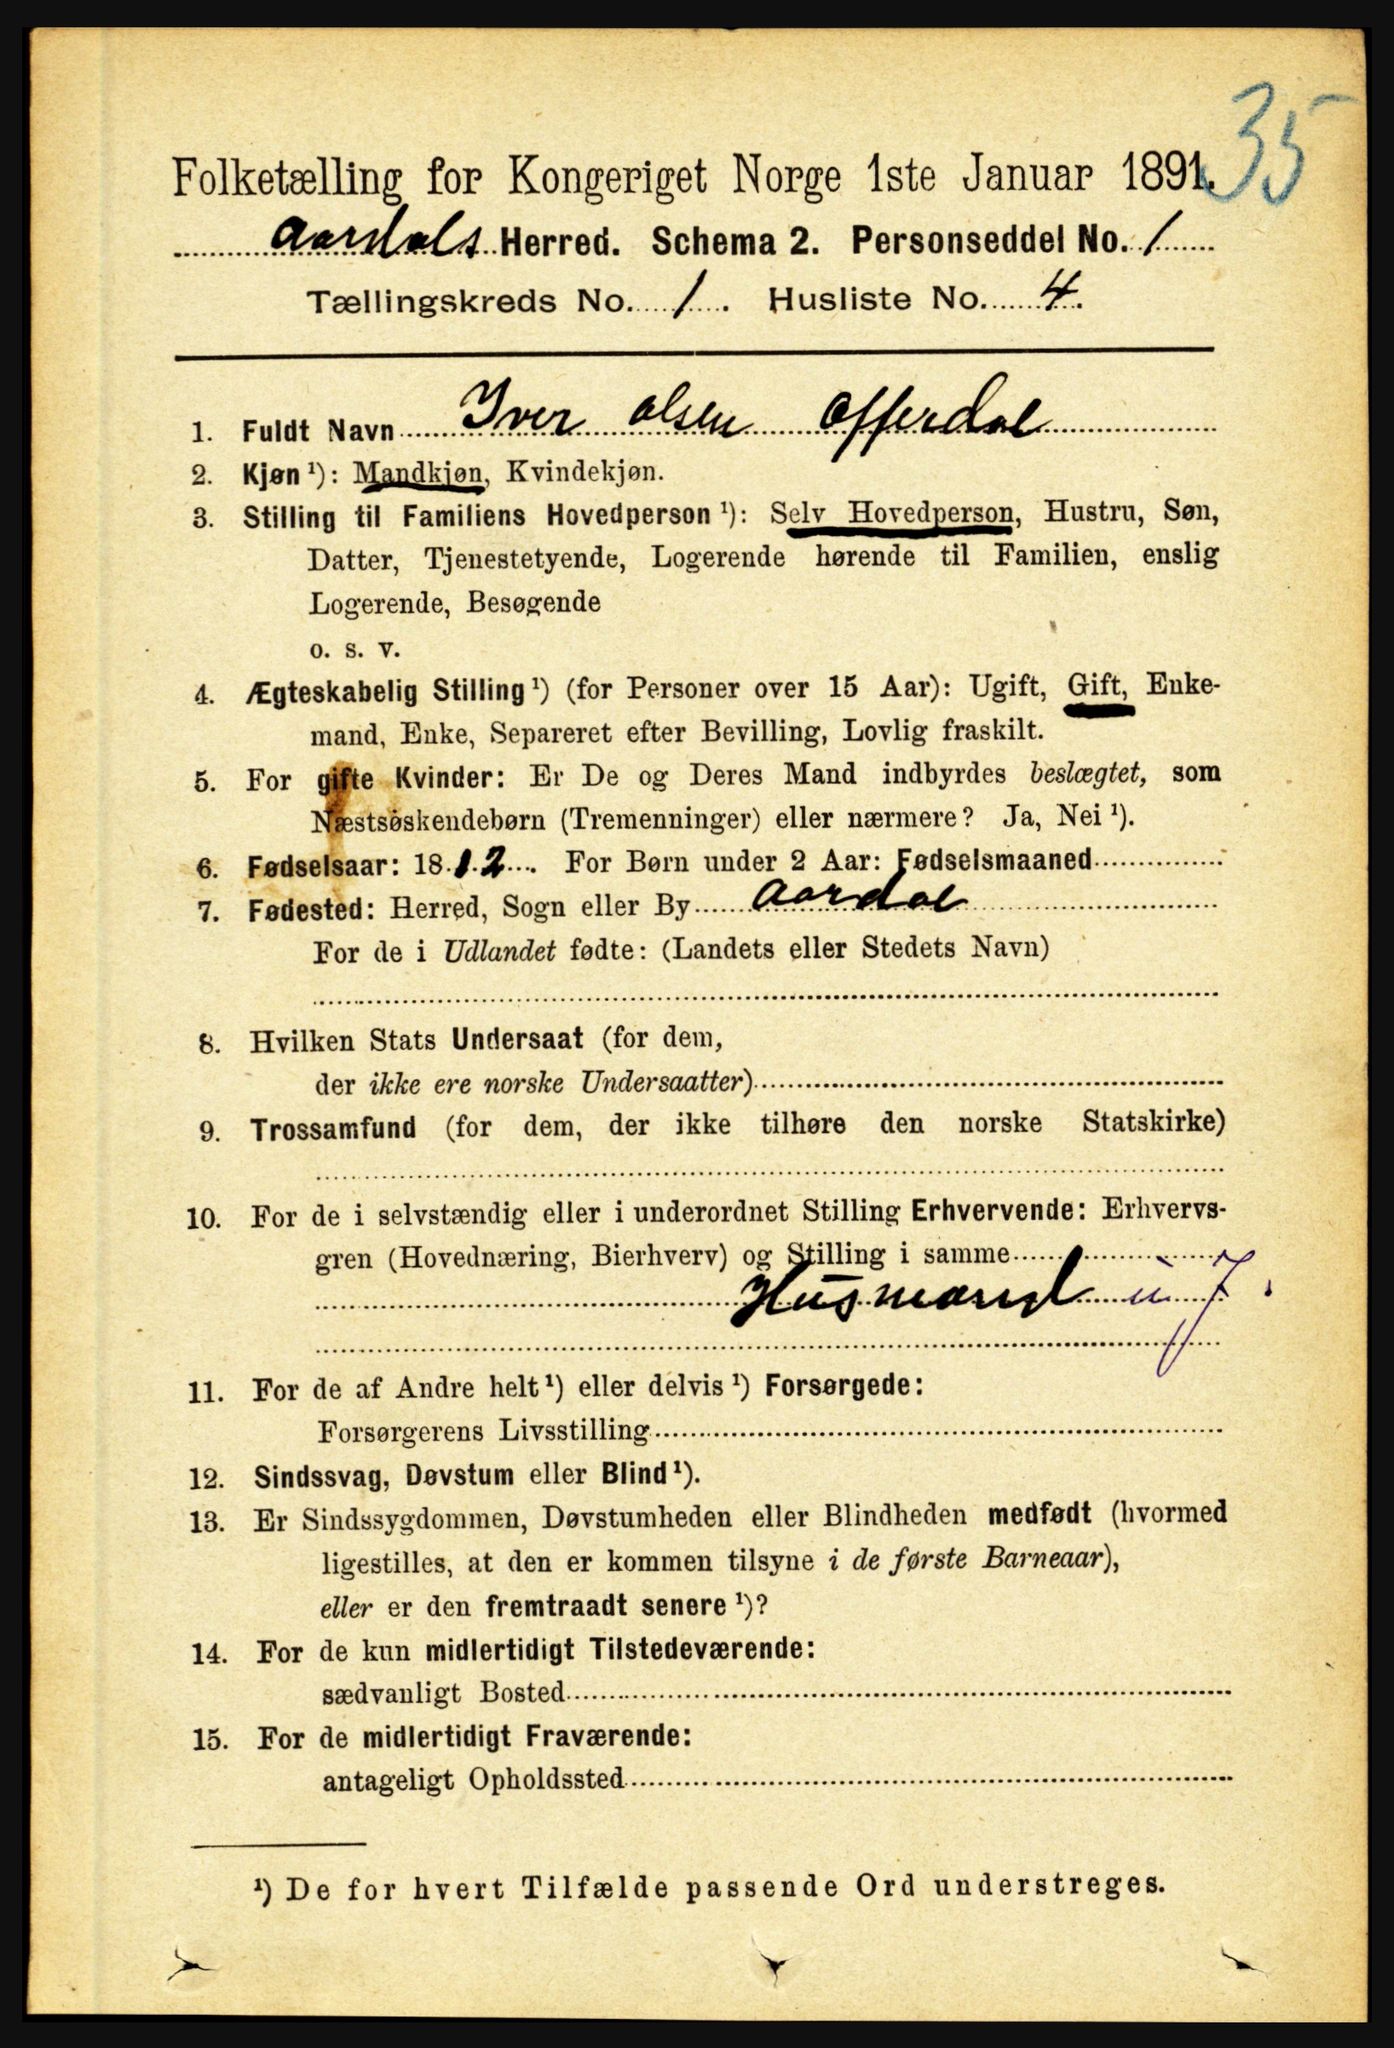 35
Folketælling for Kongeriget Norge 1ste Januar 1891.
Aardals Herred. Schema 2. Personseddel No. 1
Tællingskreds No. 1. Husliste No. 4.
1. Fuldt Navn Iver Olsen Offerdal
2. Kjøn ¹): Mandkjøn, Kvindekjøn.
3. Stilling til Familiens Hovedperson ¹): Selv Hovedperson, Hustru, Søn,
Datter, Tjenestetyende, Logerende hørende til Familien, enslig
Logerende, Besøgende
o. s. v.
4. Ægteskabelig Stilling ¹) (for Personer over 15 Aar): Ugift, Gift, Enke-
mand, Enke, Separeret efter Bevilling, Lovlig fraskilt.
5. For gifte Kvinder: Er De og Deres Mand indbyrdes beslægtet, som
Næstsøskendebørn (Tremenninger) eller nærmere? Ja, Nei ¹).
6. Fødselsaar: 1812. For Børn under 2 Aar: Fødselsmaaned
7. Fødested: Herred, Sogn eller By Aardal
For de i Udlandet fødte: (Landets eller Stedets Navn)
8. Hvilken Stats Undersaat (for dem,
der ikke ere norske Undersaatter)
9. Trossamfund (for dem, der ikke tilhøre den norske Statskirke)
10. For de i selvstændig eller i underordnet Stilling Erhvervende: Erhvervs-
gren (Hovednæring, Bierhverv) og Stilling i samme
Husmand
11. For de af Andre helt ¹) eller delvis ¹) Forsørgede:
Forsørgerens Livsstilling
12. Sindssvag, Døvstum eller Blind ¹).
13. Er Sindssygdommen, Døvstumheden eller Blindheden medfødt (hvormed
ligestilles, at den er kommen tilsyne i de første Barneaar),
eller er den fremtraadt senere ¹)?
14. For de kun midlertidigt Tilstedeværende:
sædvanligt Bosted
15. For de midlertidigt Fraværende:
antageligt Opholdssted
¹) De for hvert Tilfælde passende Ord understreges.